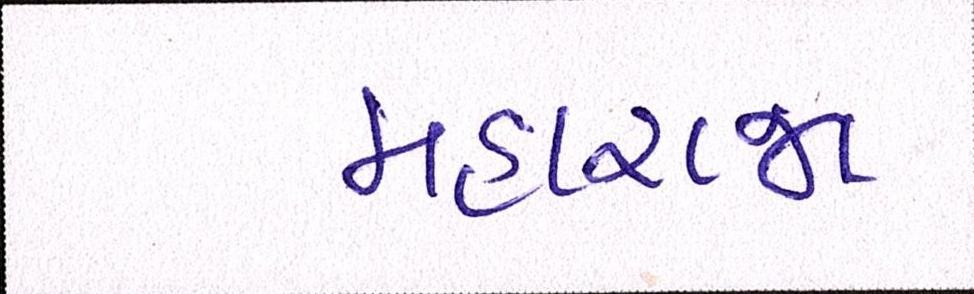 મહારાજા